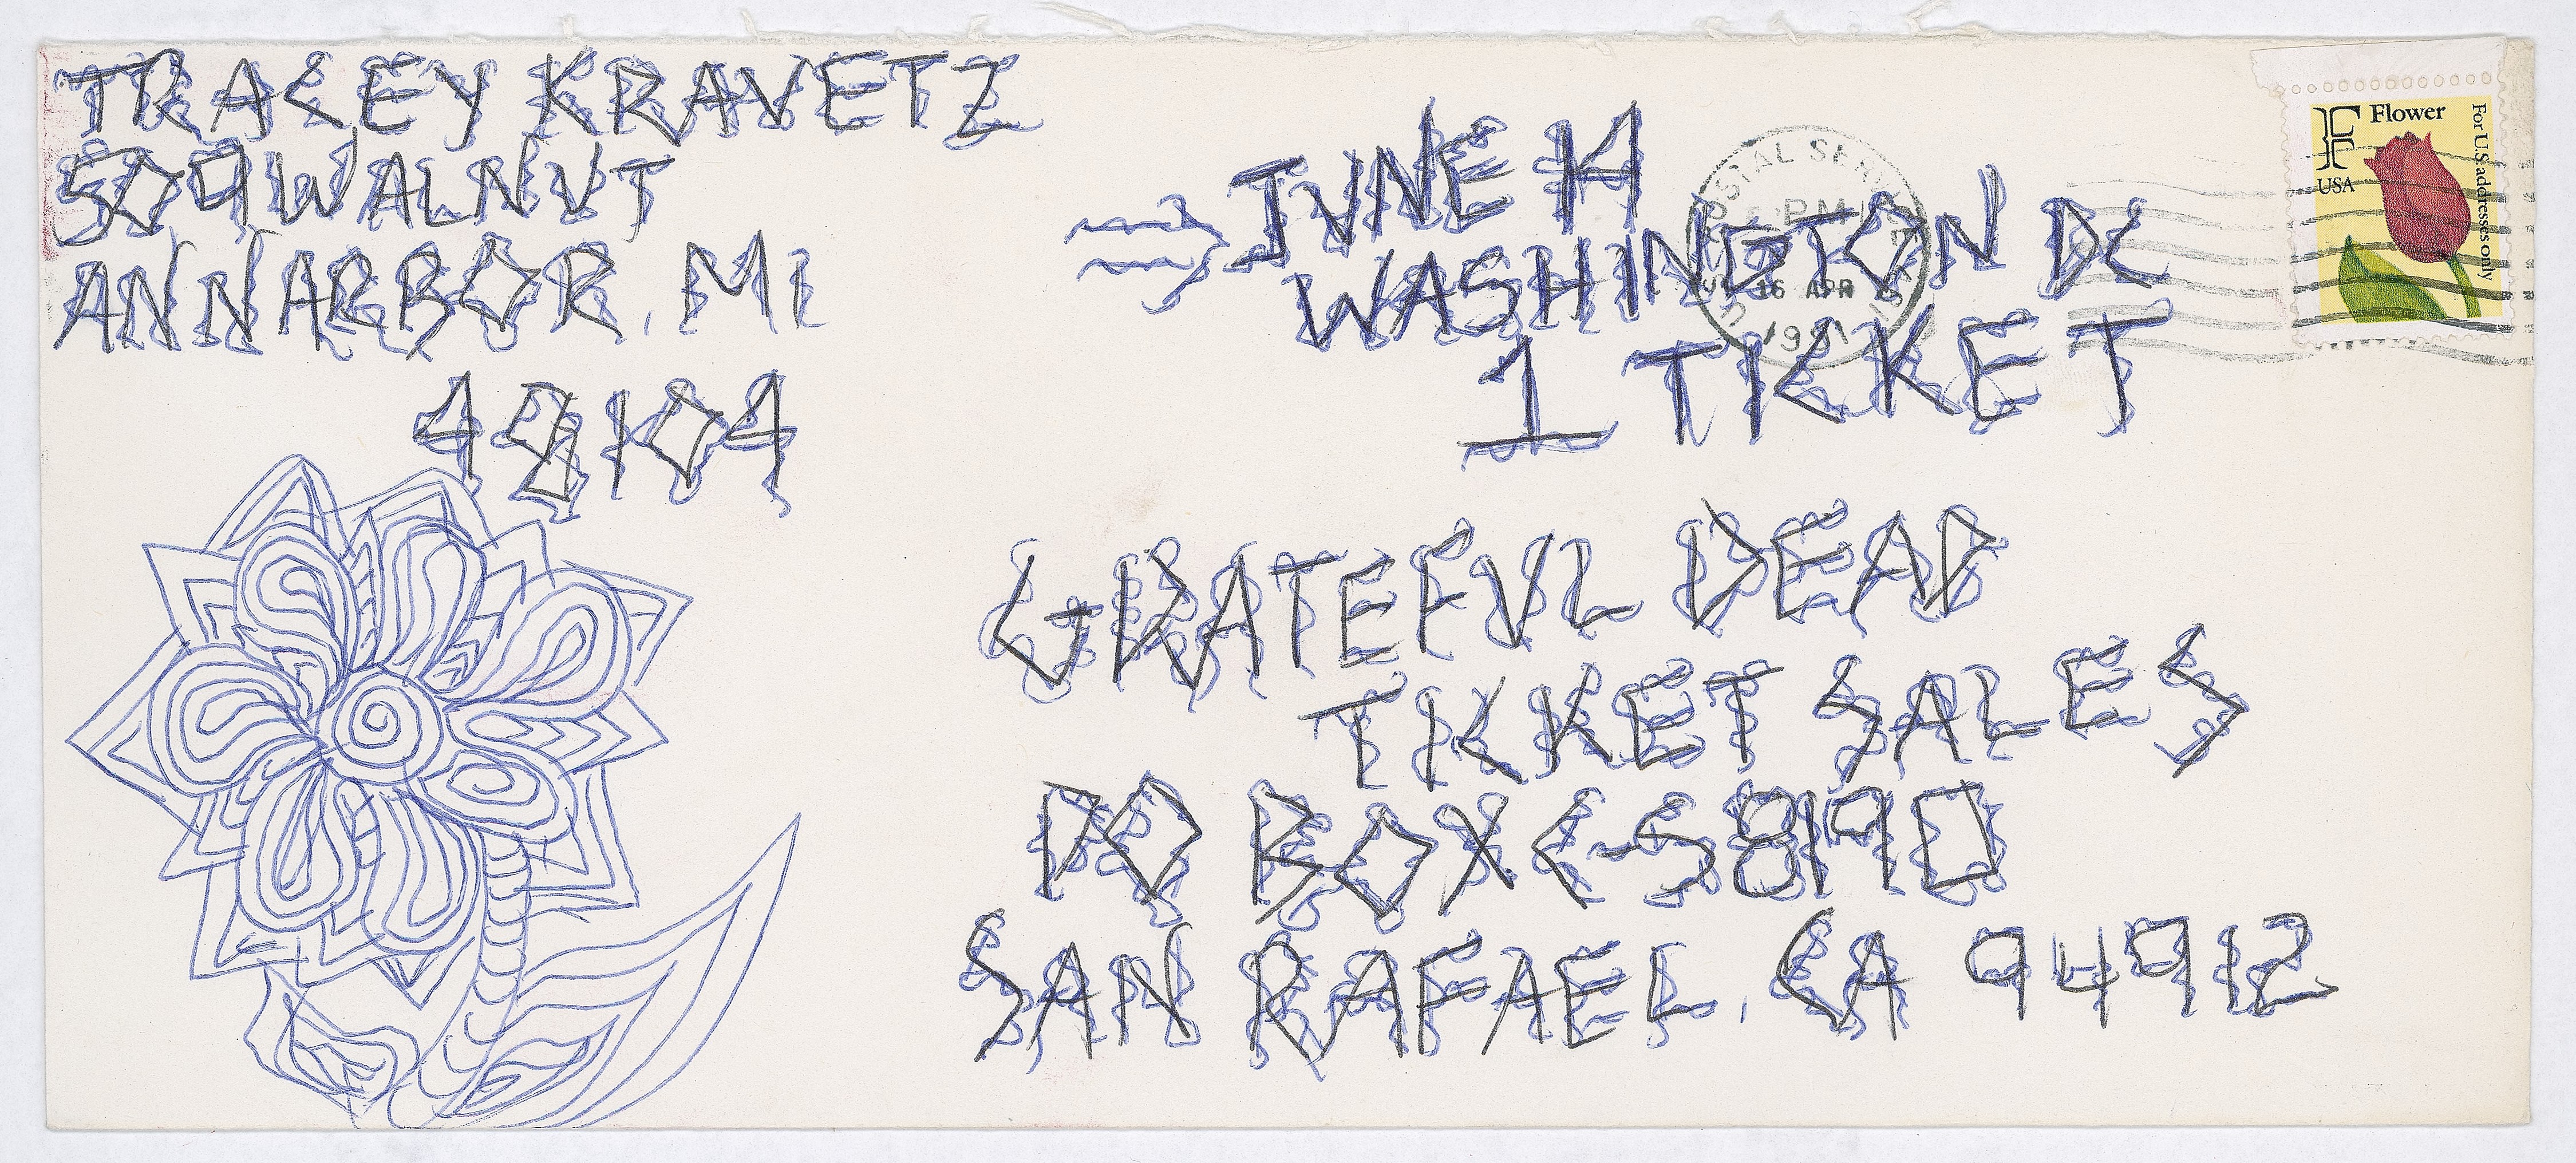 TRACEY KRAVETZ
509 WALNUT
ANN ARBOR, MI
48104
JUNE 14
WASHINGTON DC
1 TICKET
POSTAL SERVICE
PM
16 APR
1991
F Flower
USA
For U.S. addresses only
GRATEFUL DEAD
TICKET SALES
PO BOX C-S8190
SAN RAFAEL, CA 94912